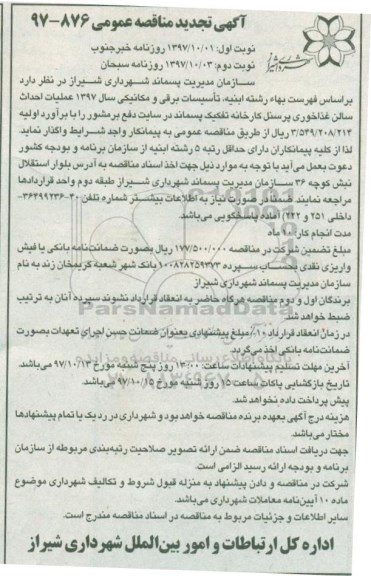 آگهی تجدید مناقصه عمومی ۸۷۶-۹۷
نوبت اول: ۱۳۹۷/۱۰/۰۱ روزنامه خبرجنوب
نوبت دوم: ۱۳۹۷/۱۰/۰۳ روزنامه سبحان
سازمان مدیریت پسماند شهرداری شیراز در نظر دارد
براساس فهرست بهاء رشته ابنیه، تأسیسات برقی و مکانیکی سال ۱۳۹۷ عملیات احداث
سالن غذاخوری پرسنل کارخانه تفکیک پسماند در سایت دفع برمشور را با برآورد اولیه
۳/۵۴۹/۲۰۸/۲۱۴ ریال از طریق مناقصه عمومی به پیمانکار واجد شرایط واگذار نماید.
لذا از کلیه پیمانکاران دارای حداقل رتبه ۵ رشته ابنیه از سازمان برنامه و بودجه کشور
دعوت بعمل می‌آید با توجه به موارد ذیل جهت اخذ اسناد مناقصه به آدرس بلوار استقلال
نبش کوچه ۳۶ سازمان مدیریت پسماند شهرداری شیراز طبقه دوم واحد قراردادها
مراجعه نمایند. ضمناً در صورت نیاز به اطلاعات بیشتر شماره تلفن ۴۰-۳۶۴۹۹۲۳۶
داخلی ۲۵۱ و ۲۲۲ آماده پاسخگویی می‌باشد.
مدت انجام کار: ۱۰ ماه
مبلغ تضمین شرکت در مناقصه ۱۷۷/۵۰۰/۰۰۰ ریال بصورت ضمانت‌نامه بانکی یا فیش
واریزی نقدی بحساب سپرده ۱۰۰۸۲۸۲۵۹۳۷۳ بانک شهر شعبه کریمخان زند به نام
سازمان مدیریت پسماند شهرداری شیراز
برندگان اول و دوم مناقصه هرگاه حاضر به انعقاد قرارداد نشوند سپرده آنان به ترتیب
ضبط خواهد شد.
در زمان انعقاد قرارداد ۱۰٪ مبلغ پیشنهادی بعنوان ضمانت حسن اجرای تعهدات بصورت
ضمانت‌نامه بانکی اخذ می‌گردد.
آخرین مهلت تسلیم پیشنهادات ساعت: ۱۳:۰۰ روز پنج شنبه مورخ ۹۷/۱۰/۱۳ می‌باشد.
تاریخ بازگشایی پاکات ساعت ۱۵ روز شنبه مورخ ۹۷/۱۰/۱۵ می‌باشد.
پیش پرداخت داده نخواهد شد.
هزینه درج آگهی بعهده برنده مناقصه خواهد بود و شهرداری در رد یک یا تمام پیشنهادها
مختار می‌باشد.
جهت دریافت اسناد مناقصه ضمن ارائه تصویر صلاحیت رتبه‌بندی مربوطه از سازمان
برنامه و بودجه ارائه رسید الزامی است.
شرکت در مناقصه و دادن پیشنهاد به منزله قبول شروط و تکالیف شهرداری موضوع
ماده ۱۰ آیین‌نامه معاملات شهرداری می‌باشد.
سایر اطلاعات و جزئیات مربوط به مناقصه در اسناد مناقصه مندرج است.
اداره کل ارتباطات و امور بین‌الملل شهرداری شیراز
ParsNamadData